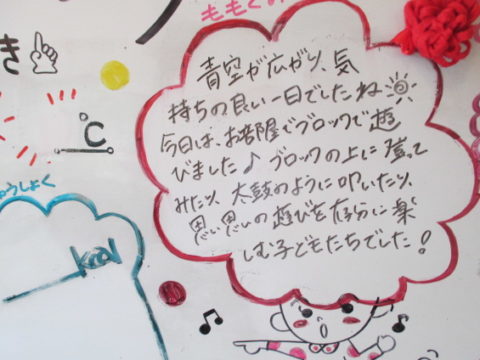 ももぐみ
き
℃
ゅうしょく
kcal
青空が広がり、気
持ちの良い一日でしたね
今日は、お部屋でブロックで遊
びました♪ ブロックの上に登って
みたり、太鼓のように叩いたり、
思い思いの遊びを存分に楽
しむ子どもたちでした！